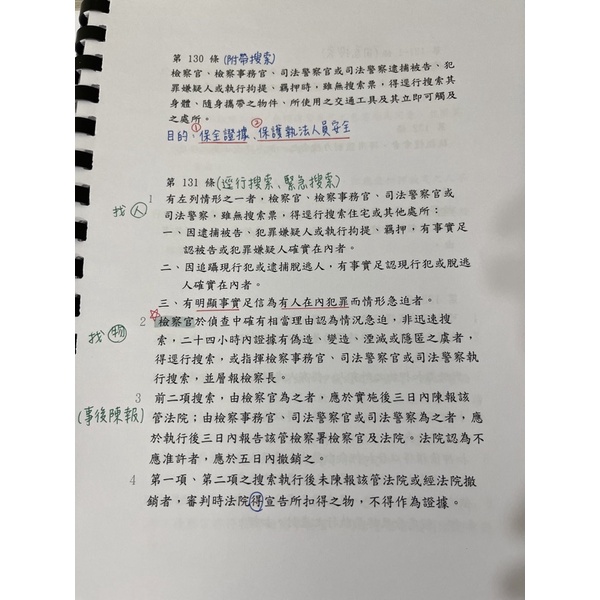 第 130 條 (附帶搜索)
檢察官、檢察事務官、司法警察官或司法警察逮捕被告、犯
罪嫌疑人或執行拘提、羈押時,雖無搜索票,得逕行搜索其
身體、隨身攜帶之物件、所使用之交通工具及其立即可觸及
之處所。
目的:①保全證據、②保護執法人員安全
第 131 條(逕行搜索、緊急搜索)
找人 1 有左列情形之一者,檢察官、檢察事務官、司法警察官或
司法警察,雖無搜索票,得逕行搜索住宅或其他處所:
一、因逮捕被告、犯罪嫌疑人或執行拘提、羈押,有事實足
認被告或犯罪嫌疑人確實在內者。
二、因追躡現行犯或逮捕脫逃人,有事實足認現行犯或脫逃
人確實在內者。
三、有明顯事實足信為有人在內犯罪而情形急迫者。
找物 2 ☆檢察官於偵查中確有相當理由認為情況急迫,非迅速搜
索,二十四小時內證據有偽造、變造、湮滅或隱匿之虞者,
得逕行搜索,或指揮檢察事務官、司法警察官或司法警察執
行搜索,並層報檢察長。
3 前二項搜索,由檢察官為之者,應於實施後三日內陳報該
(事後陳報) 管法院;由檢察事務官、司法警察官或司法警察為之者,應
於執行後三日內報告該管檢察署檢察官及法院。法院認為不
應准許者,應於五日內撤銷之。
4 第一項、第二項之搜索執行後未陳報該管法院或經法院撤
銷者,審判時法院得宣告所扣得之物,不得作為證據。